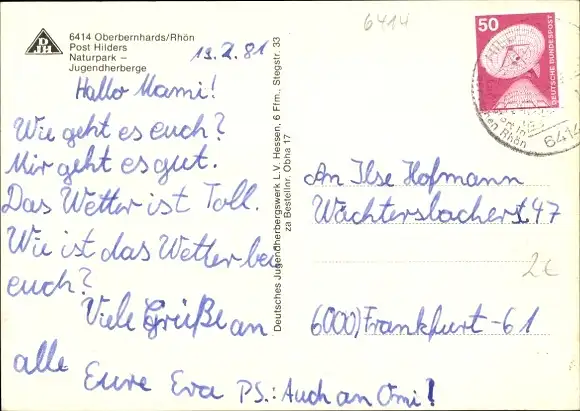 6414
DJH
6414 Oberbernhards/Rhön
Post Hilders
Naturpark –
Jugendherberge
13.7.81
Hallo Mami!
Wie geht es euch?
Mir geht es gut.
Das Wetter ist Toll.
Wie ist das Wetter bei
euch?
Viele Grüße an
alle Eure Eva PS.: Auch an Omi!
Deutsches Jugendherbergswerk L.V. Hessen, 6 Ffm., Stegstr. 33
za Bestellnr. Obha 17
50
DEUTSCHE BUNDESPOST
Rhön
6414
An Ilse Hofmann
Wächtersbacherst. 47
2€
6000, Frankfurt-61